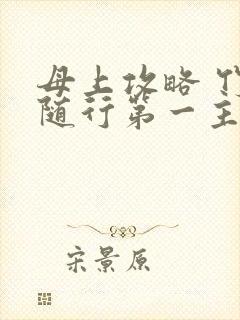 母上攻略
随行第一主
宋景原